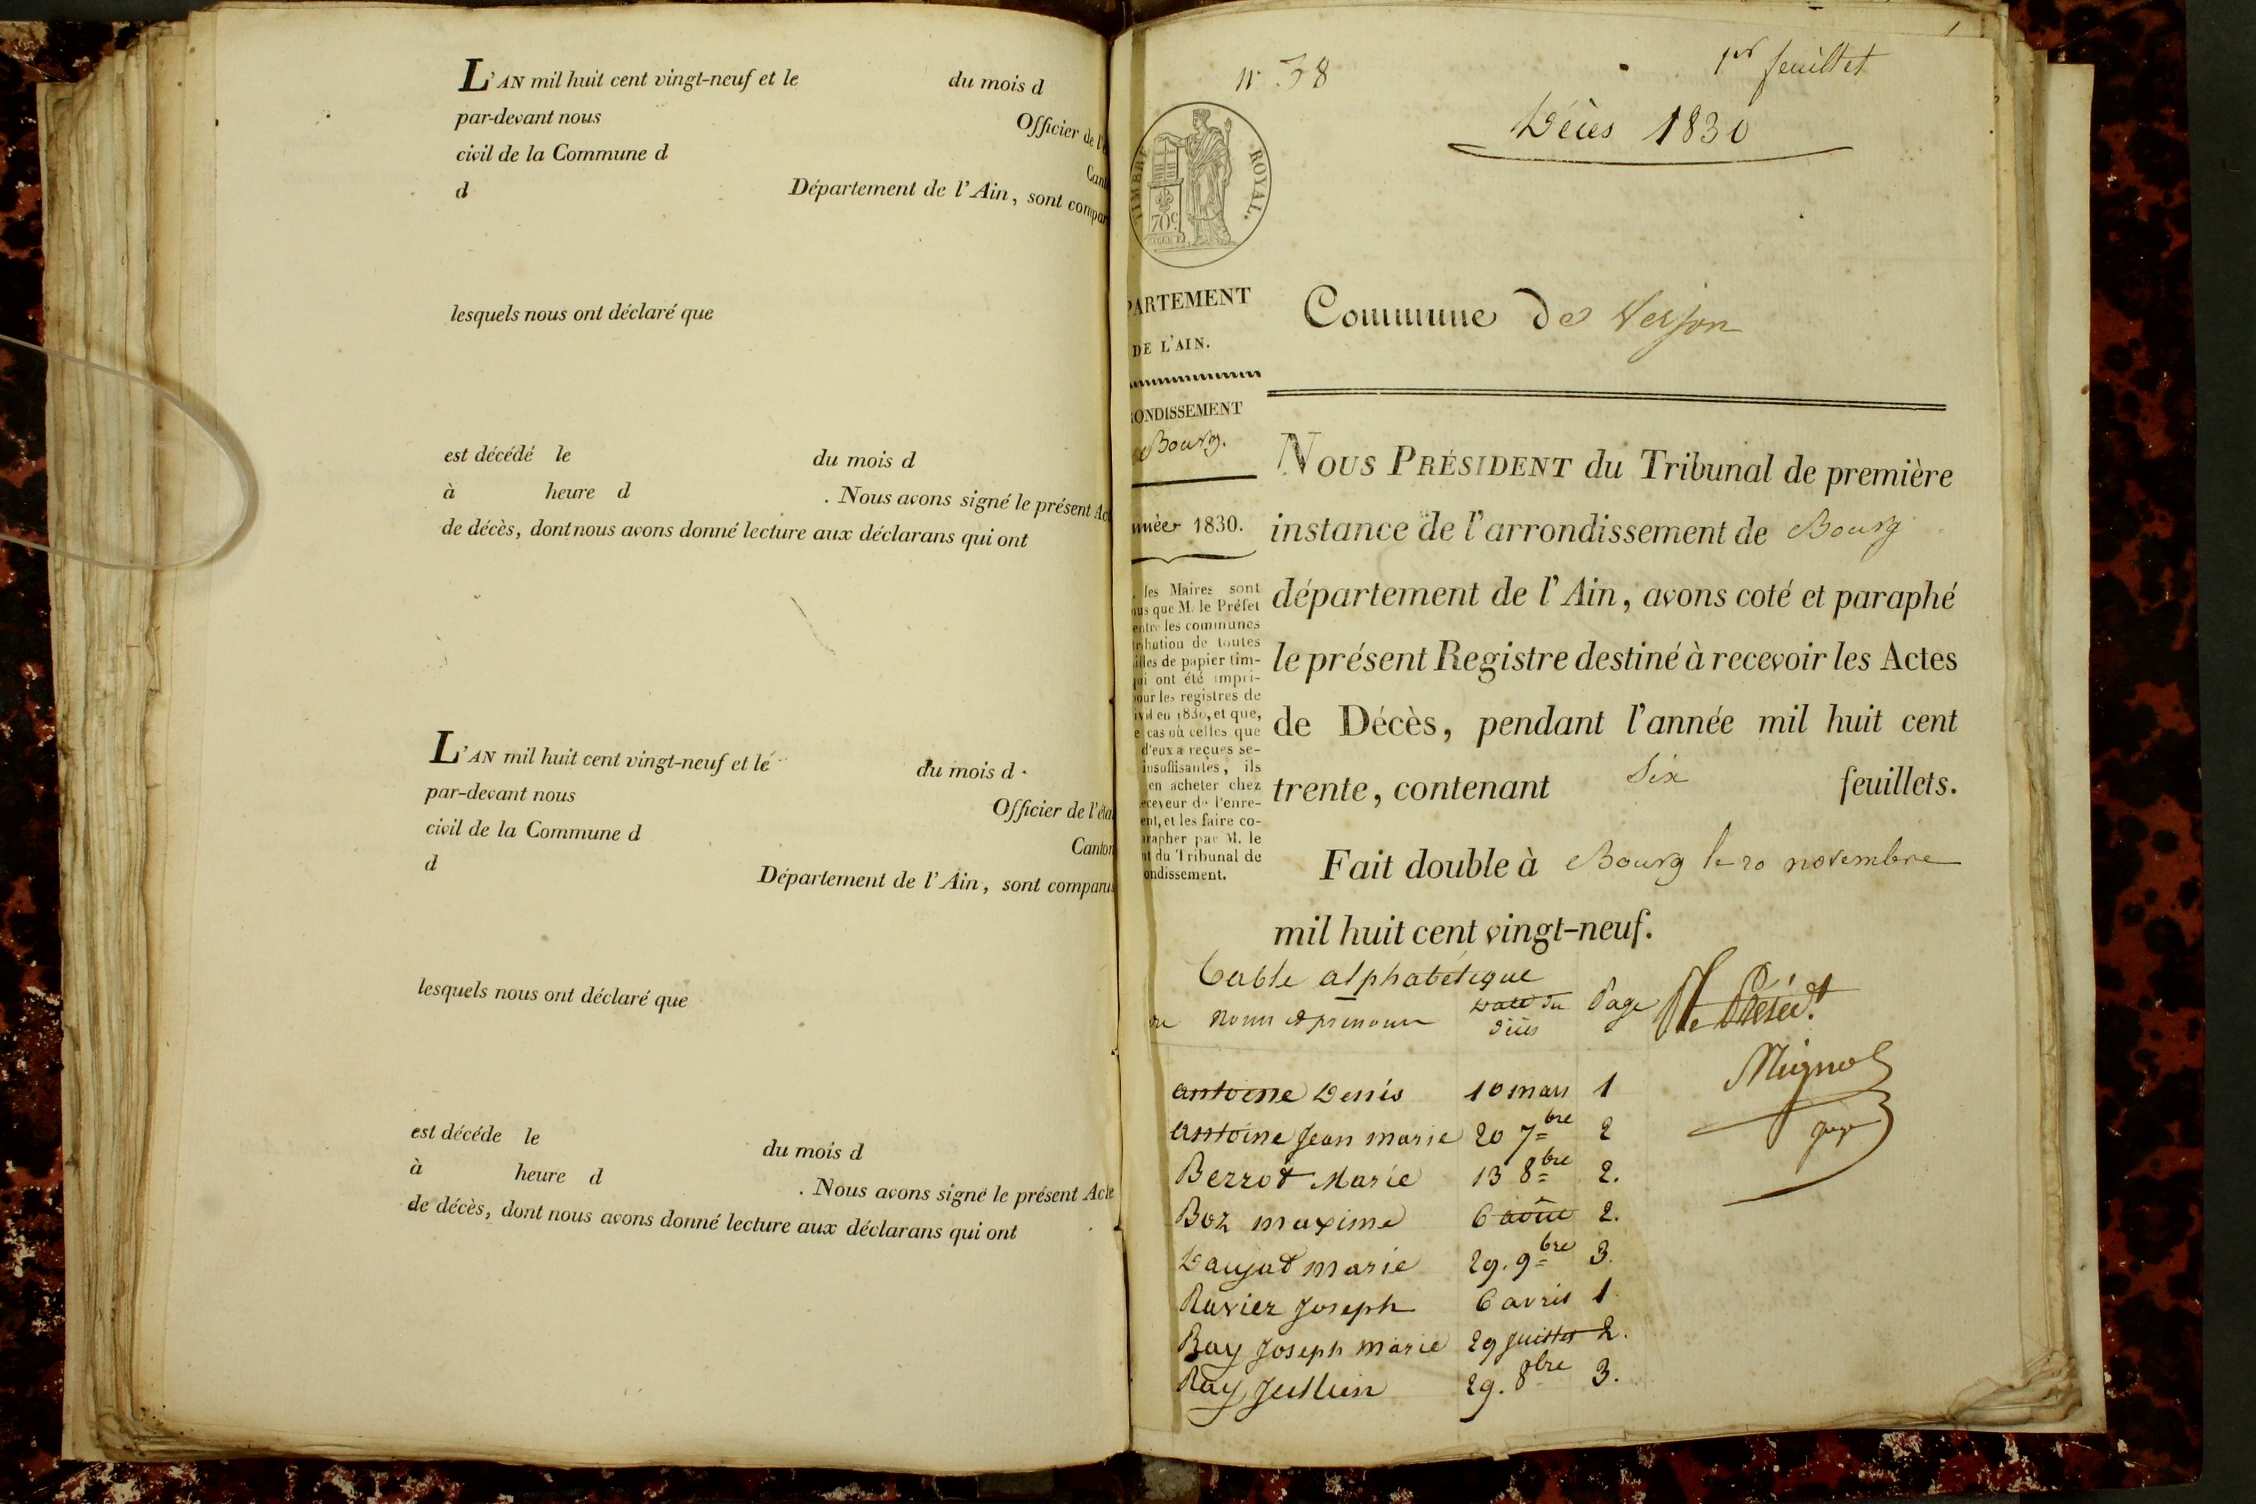 L'AN mil huit cent vingt-neuf et le du mois d
par-devant nous Officier de l'é
civil de la Commune d Cant
d Département de l'Ain, sont compar
lesquels nous ont déclaré que
est décédé le du mois d
à heure d . Nous avons signé le présent Ac
de décès, dont nous avons donné lecture aux déclarans qui ont
L'AN mil huit cent vingt-neuf et le du mois d
par-devant nous Officier de l'éta
civil de la Commune d Canton
d Département de l'Ain, sont comparus
lesquels nous ont déclaré que
est décéde le du mois d
à heure d . Nous avons signé le présent Acte
de décès, dont nous avons donné lecture aux déclarans qui ont
n° 38 1er feuillet
Décès 1830
TIMBRE ROYAL.
70c
PARTEMENT
DE L'AIN.
Commune de Verjon
ONDISSEMENT
de Bourg.
nnée 1830.
les Maires sont
nus que M. le Préfet
entre les communes
tribution de toutes
illes de papier tim-
qui ont été impri-
pour les registres de
ivil en 1830, et que,
e cas où celles que
d'eux a reçues se-
insuffisantes, ils
en acheter chez
eceveur de l'enre-
ent, et les faire co-
arapher par M. le
nt du Tribunal de
ondissement.
NOUS PRÉSIDENT du Tribunal de première
instance de l'arrondissement de Bourg
département de l'Ain, avons coté et paraphé
le présent Registre destiné à recevoir les Actes
de Décès, pendant l'année mil huit cent
trente, contenant six feuillets.
Fait double à Bourg le 20 novembre
mil huit cent vingt-neuf.
Table alphabétique
Noms et prenoms Date du décès Page
antoine Denis 10 mars 1
antoine Jean marie 20 7bre 2
Berrot Marie 13 8bre 2.
Boz maxime 6 août 2.
Daujat marie 29. 9bre 3.
Ravier Joseph 6 avril 1
Ray Joseph marie 29 juillet 2.
Ray Jullien 29. 8bre 3.
Pr le Présidt
Mignot
juge